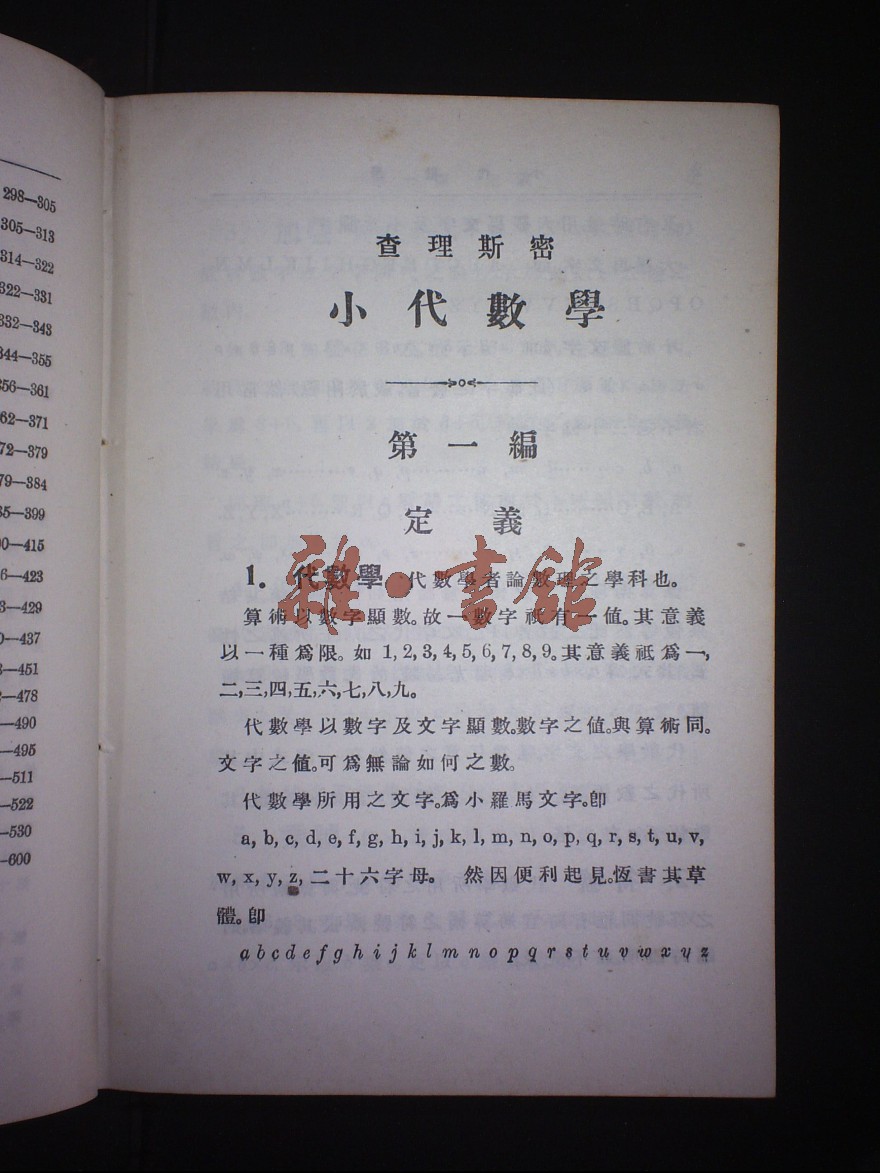 298—305
305—313
314—322
322—331
332—343
344—355
356—361
62—371
72—379
79—384
85—399
00—415
6—423
3—429
0—437
3—451
2—478
—490
—495
—511
—522
—530
—600
查理斯密
小代數學
第一編
定義
1. 代數學 代數學者論數理之學科也。
算術以數字顯數。故一數字祇有一值。其意義
以一種爲限。如 1,2,3,4,5,6,7,8,9。其意義祗爲一,
二,三,四,五,六,七,八,九。
代數學以數字及文字顯數。數字之值。與算術同。
文字之値。可爲無論如何之數。
代數學所用之文字。爲小羅馬文字。卽
a, b, c, d, e, f, g, h, i, j, k, l, m, n, o, p, q, r, s, t, u, v,
w, x, y, z, 二十六字母。 然因便利起見。恆書其草
體。卽
a b c d e f g h i j k l m n o p q r s t u v w x y z
雅·書館